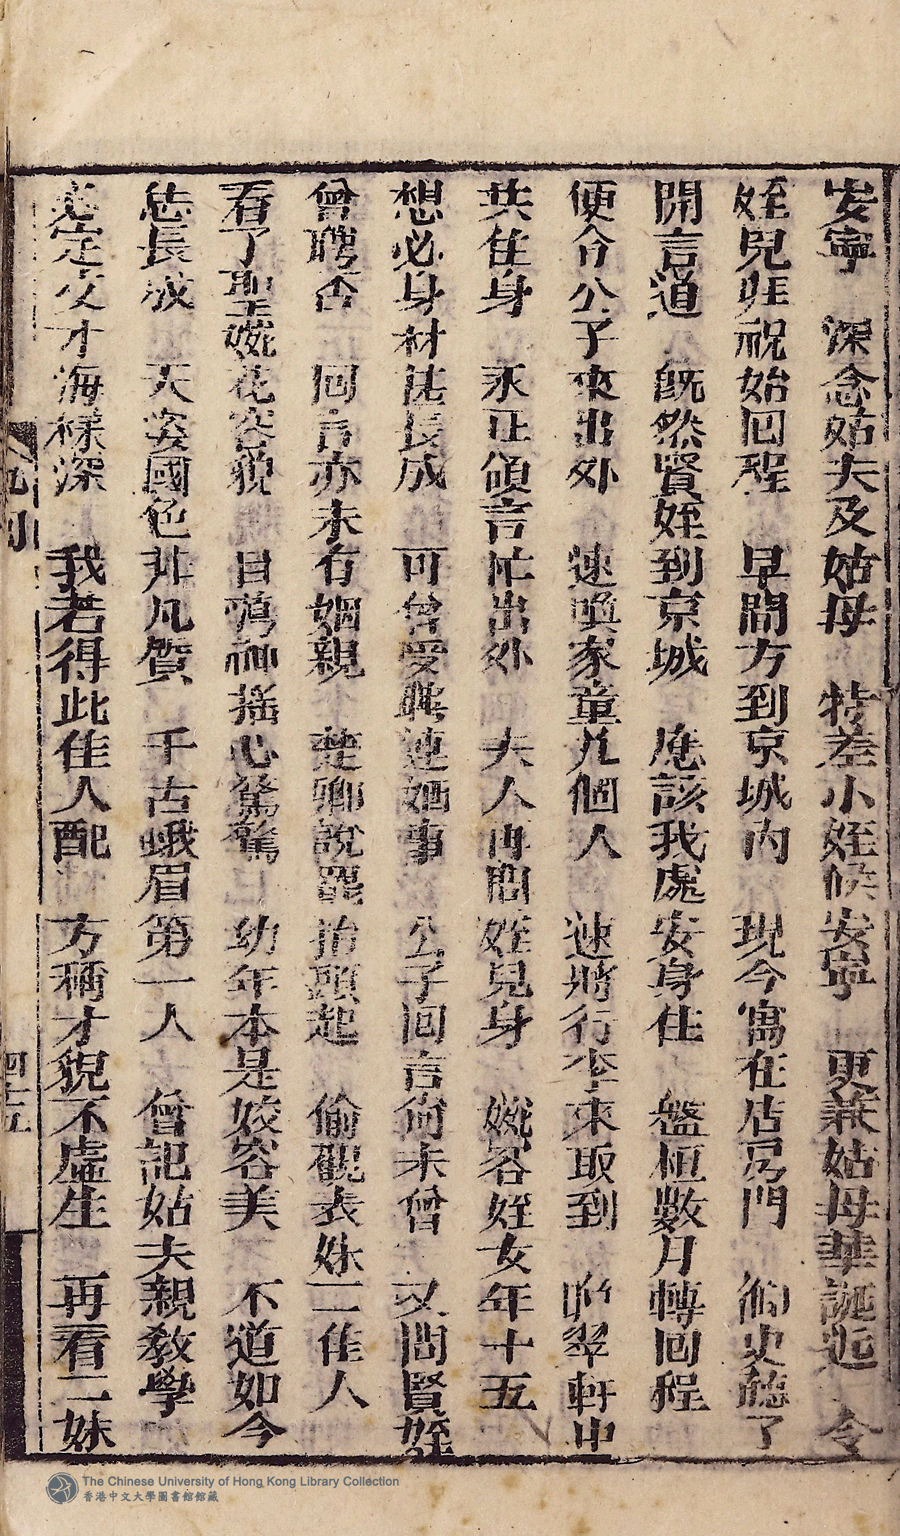 安寧　深念姑夫及姑母　特差小姪候安寧　更兼姑母華誕近　令
姪兒拜祝始回程　早間方到京城內　現今寓在店房門　御史聽了
開言道　既然賢姪到京城　應該我處安身住　盤桓數月轉回程
便令公子來出外　速喚家童几個人　速將行李來取到　貯翠軒中
共住身　永正領言忙出外　夫人再問姪兒身　婉容姪女年十五
想必身材甚長成　可曾受聘連婚事　公子回言尙未曾　又問賢姪
曾聘否　回言亦未有姻親　楚卿說罷抬頭起　偷觀表妹二佳人
看了聖婉花容貌　目蕩神搖心驚驚　幼年本是姣容美　不道如今
恁長成　天姿國色非凡質　千古蛾眉第一人　曾記姑夫親教學
必定文才海樣深　我若得此佳人配　方稱才貌不虛生　再看二妹
四十五
The Chinese University of Hong Kong Library Collection
香港中文大學圖書館館藏